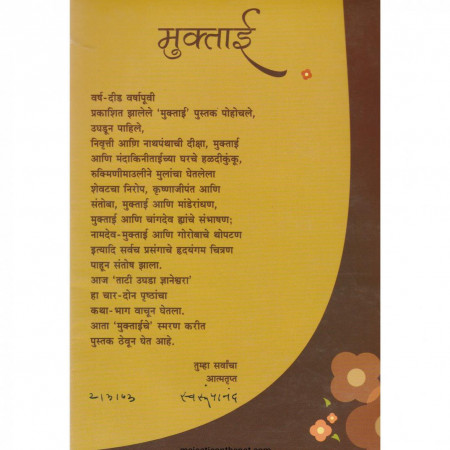 मुक्ताई
वर्ष-दीड वर्षापूर्वी
प्रकाशित झालेले 'मुक्ताई' पुस्तक पोहोचले,
उघडून पाहिले,
निवृत्ती आणि नाथपंथाची दीक्षा, मुक्ताई
आणि मंदाकिनीताईच्या घरचे हळदीकुंकू,
रुक्मिणीमाउलीने मुलांचा घेतलेला
शेवटचा निरोप, कृष्णाजीपंत आणि
संतोबा, मुक्ताई आणि मांडेरांधण,
मुक्ताई आणि चांगदेव ह्यांचे संभाषण;
नामदेव-मुक्ताई आणि गोरोबाचे थोपटण
इत्यादि सर्वच प्रसंगाचे हृदयंगम चित्रण
पाहून संतोष झाला.
आज 'ताटी उघडा ज्ञानेश्वरा'
हा चार-दोन पृष्ठांचा
कथा-भाग वाचून घेतला.
आता 'मुक्ताईचे' स्मरण करीत
पुस्तक ठेवून घेत आहे.
तुम्हा सर्वांचा
आत्मतृप्त
स्वरूपानंद